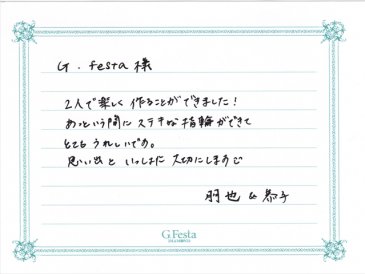 G.festa様
2人で楽しく作ることができました!
あっという間にステキな指輪ができて
とてもうれしいです。
思い出といっしょに大切にします
朋也&恭子
G.Festa